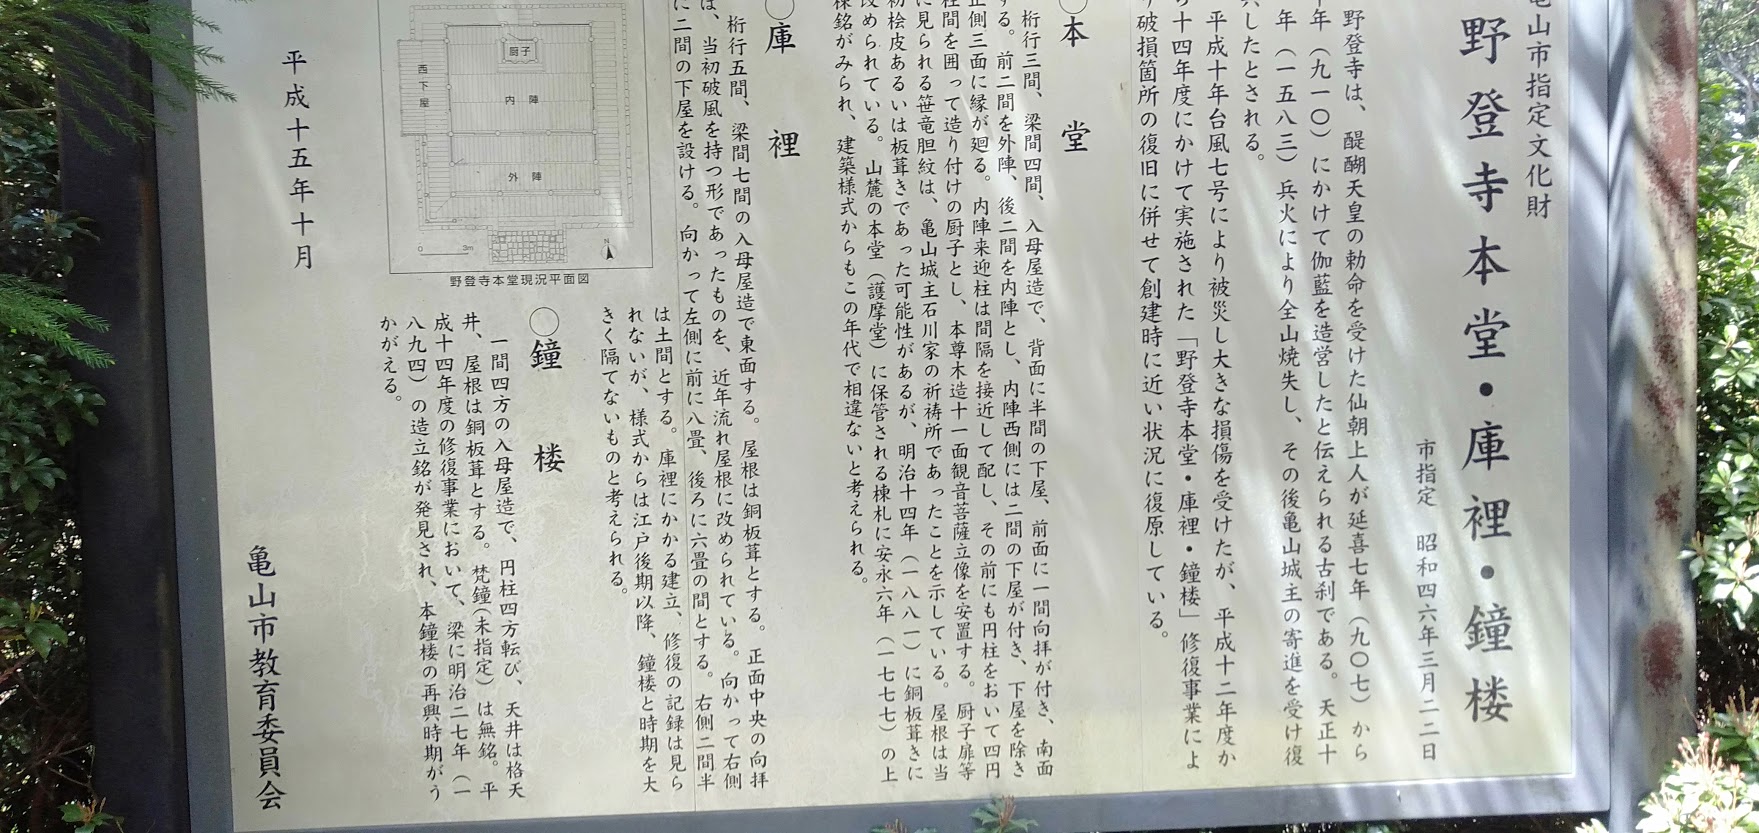 亀山市指定文化財
野登寺本堂・庫裡・鐘楼
市指定 昭和四六年三月二二日
野登寺は、醍醐天皇の勅命を受けた仙朝上人が延喜七年(九〇七)から
年(九一〇)にかけて伽藍を造営したと伝えられる古刹である。天正十
年(一五八三)兵火により全山焼失し、その後亀山城主の寄進を受け復
したとされる。
平成十年台風七号により被災し大きな損傷を受けたが、平成十二年度か
ら十四年度にかけて実施された「野登寺本堂・庫裡・鐘楼」修復事業によ
り破損箇所の復旧に併せて創建時に近い状況に復原している。
〇本堂
桁行三間、梁間四間、入母屋造で、背面に半間の下屋、前面に一間向拝が付き、南面
する。前二間を外陣、後二間を内陣とし、内陣西側には二間の下屋が付き、下屋を除き
正側三面に縁が廻る。内陣来迎柱は間隔を接近して配し、その前にも円柱をおいて四円
柱間を囲って造り付けの厨子とし、本尊木造十一面観音菩薩立像を安置する。厨子扉等
に見られる笹竜胆紋は、亀山城主石川家の祈祷所であったことを示している。屋根は当
初桧皮あるいは板葺きであった可能性があるが、明治十四年(一八八一)に銅板葺きに
改められている。山麓の本堂(護摩堂)に保管される棟札に安永六年(一七七七)の上
棟銘がみられ、建築様式からもこの年代で相違ないと考えられる。
〇庫裡
桁行五間、梁間七間の入母屋造で東面する。屋根は銅板葺とする。正面中央の向拝
は、当初破風を持つ形であったものを、近年流れ屋根に改められている。向かって右側
に二間の下屋を設ける。向かって左側に前に八畳、後ろに六畳の間とする。右側二間半
は土間とする。庫裡にかかる建立、修復の記録は見ら
れないが、様式からは江戸後期以降、鐘楼と時期を大
きく隔てないものと考えられる。
厨子
西下屋
内陣
外陣
0 3m
N
野登寺本堂現況平面図
〇鐘楼
一間四方の入母屋造で、円柱四方転び、天井は格天
井、屋根は銅板葺とする。梵鐘(未指定)は無銘。平
成十四年度の修復事業において、梁に明治二七年(一
八九四)の造立銘が発見され、本鐘楼の再興時期がう
かがえる。
平成十五年十月
亀山市教育委員会